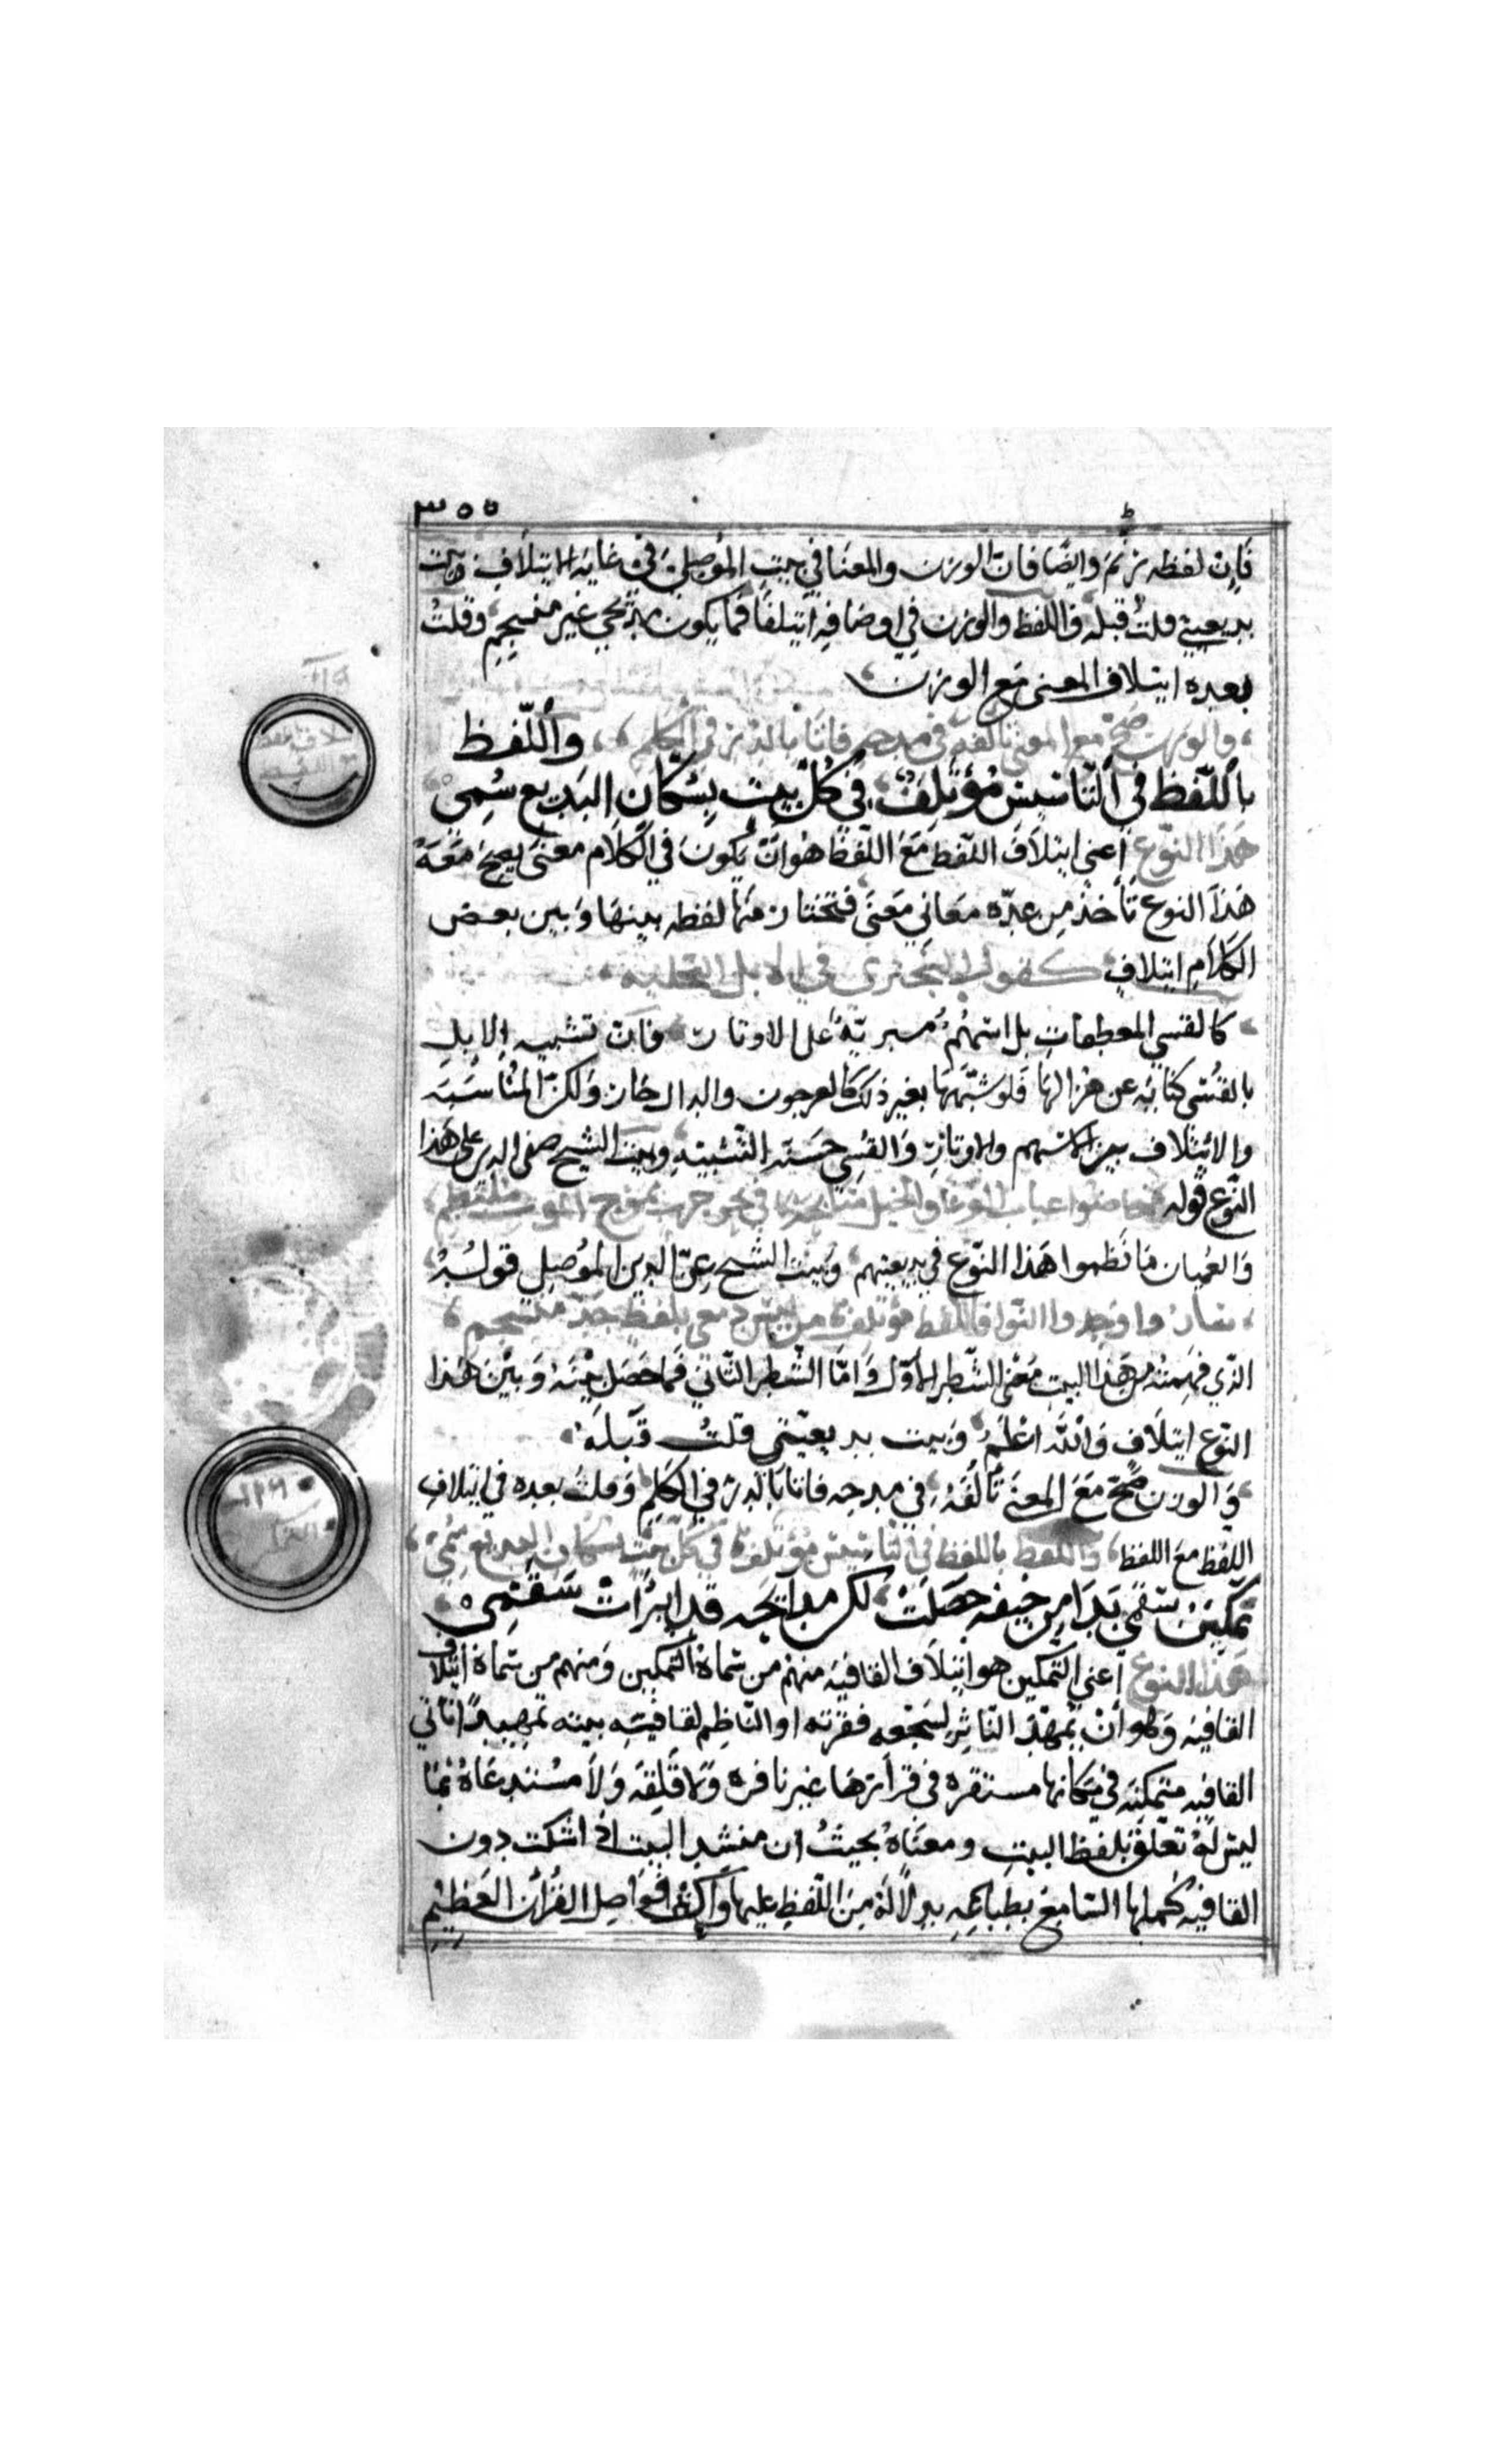 ٣٥٥
فان لفظه ترنم وايضا فان الوزن والمعنا في بيت الموصلي في غاية الايتلاف وبيت
بديعيتي قلت قبله واللفظ والوزن في اوصافه ايتلفا فما يكون مديحي غير منسجم وقلت
بعده ايتلاف المعنى مع الوزن
والوزن صح مع المعنى تالفه في مدحه فاتا بالدر في الكلم واللفظ
باللفظ في التاسيس مؤتلف في كل بيت بسكان البديع سمى
هذا النوع اعني ايتلاف اللفظ مع اللفظ هو ان يكون في الكلام معنى يصح معه
هذا النوع تأخذ من عدة معاني معنى فتختار منها لفظه بينها وبين بعض
الكلام ايتلاف كقول البحترى في الابل النحلية
كالقسي المعطفات بل اسهم مبرية بل الاوتار فان تشبيه الابل
بالقسى كناية عن هزالها فلو شبهها بغير ذلك كالعرجون والدال جاز ولكن المناسبة
والائتلاف بين الاسهم والاوتار والقسي حسنة التشبيه وبيت الشيخ صفى الدين على هذا
النوع قوله خاضوا عباب الوغا والخيل سابحة في بحر حرب بموج الموت ملتطم
والعميان ما نظموا هذا النوع في بديعيتهم وبيت الشيخ عز الدين الموصلي قوله
مؤتلفا من لفظ منسجم
الذي فهمته من هذا البيت معنى الشطر الاول واما الشطر الثاني فما حصل بينه وبين هذا
النوع ايتلاف والله اعلم وبيت بديعيتي قلت قبله
والوزن صح مع المعنى تألفه في مدحه فاتا بالدر في الكلم وقلت بعده في ايتلاف
اللفظ مع اللفظ واللفظ باللفظ في التاسيس مؤتلف في كل بيت بسكان البديع سمى
تمكين سقمي بدا من خيفه حصلت لكن مدايحه قد ابرأت سقمى
هذا النوع اعني التمكين هو ايتلاف القافية منهم من سماه التمكين ومنهم من سماه ايتلاف
القافيه وهو ان يمهد الناثر لسجعه فقرته او الناظم لقافيته بيته تمهيدا تاتي
القافيه متمكنه في مكانها مستقره في قرارها غير نافره ولا قلقه ولا مستدعاة بما
ليس له تعلق بلفظ البيت ومعناه بحيث ان منشد البيت اذا سكت دون
القافيه كملها السامع بطباعه بدلالة من اللفظ عليها واكثر فواصل القرآن العظيم